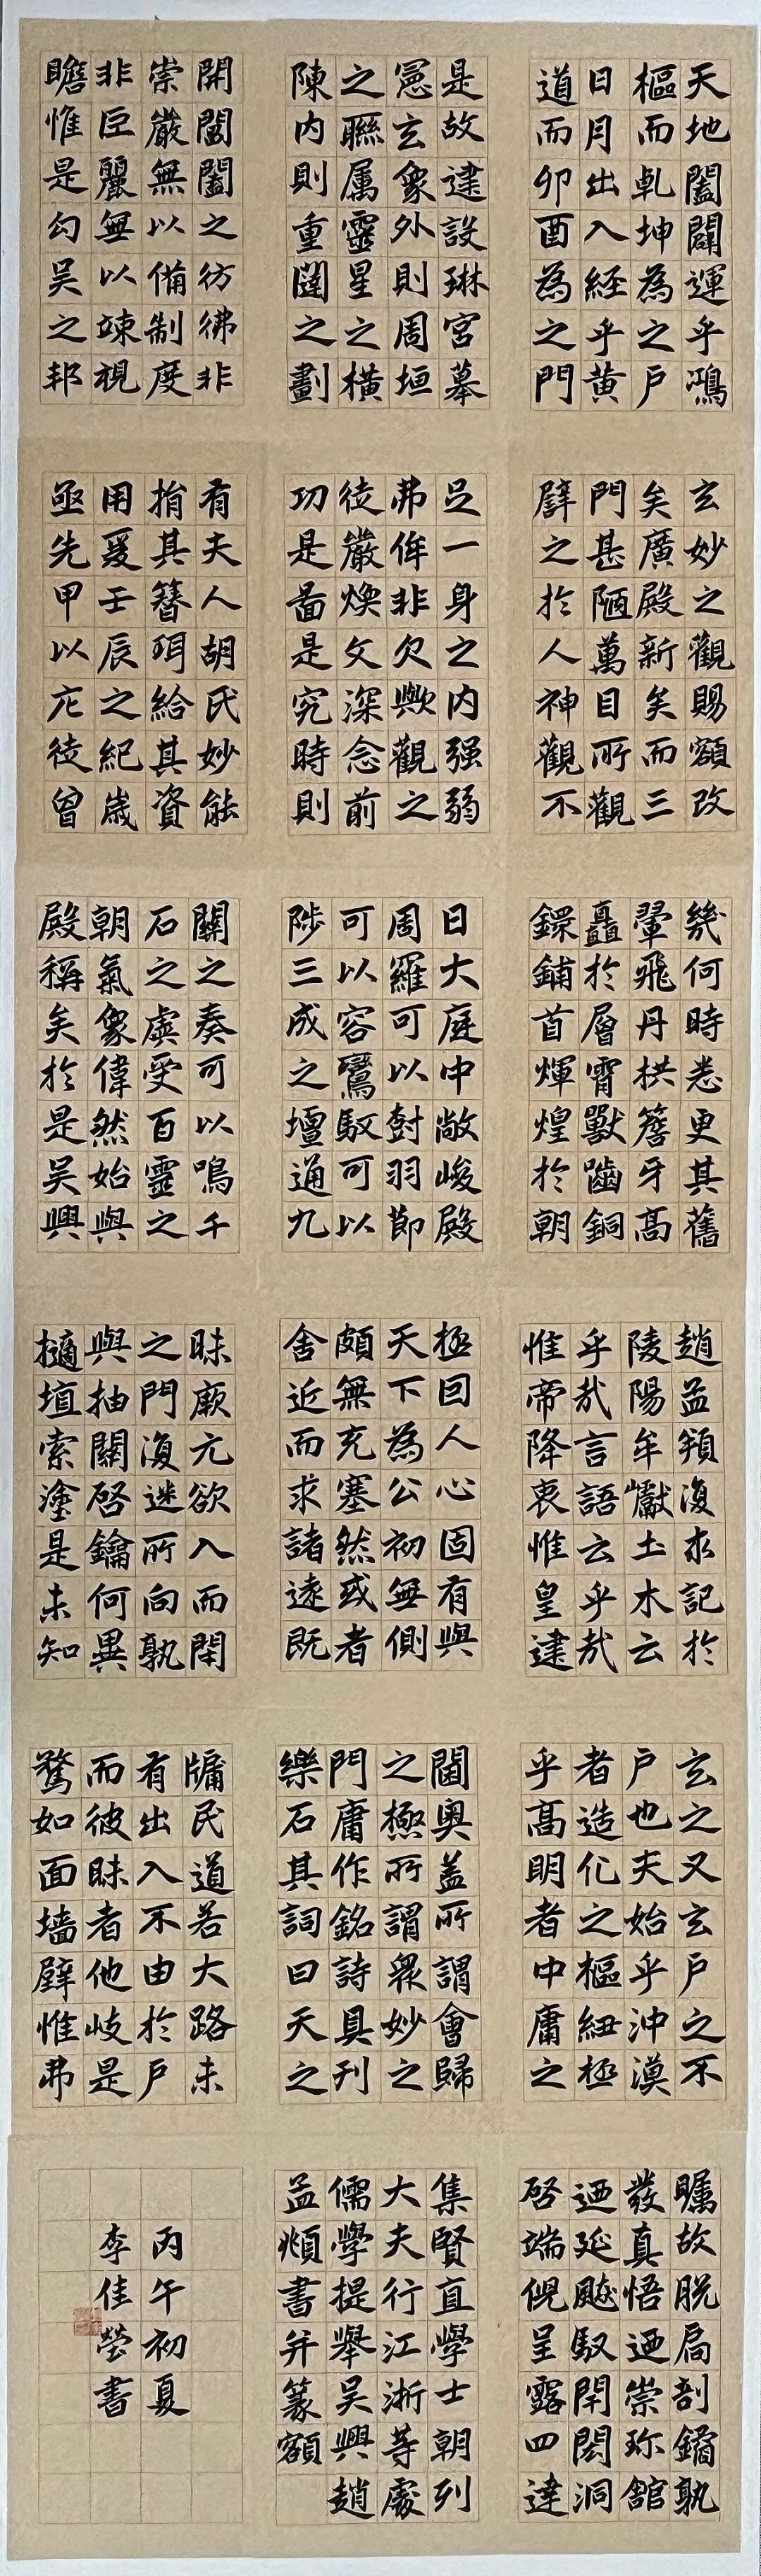 天地闔闢運乎鴻
樞而乹坤為之戶
日月出入経乎黄
道而卯酉為之門
是故建設琳宮摹
憲玄象外則周垣
之聮属靈星之橫
陳内則重闥之劃
開闔闔之彷彿非
崇嚴無以備制度
非巨麗無以竦視
瞻惟是勾吴之邦
玄妙之觀賜額改
矣廣殿新矣而三
門甚陋萬目所觀
譬之於人神觀不
足一身之内强弱
弗侔非欠歟觀之
徒嚴煥文深念前
功是啚是究時則
有夫人胡氏妙能
捐其簪珥給其資
用爰壬辰之紀歲
亟先甲以庀徒曾
幾何時悉更其舊
翬飛丹栱簷牙髙
矗於層霄獸齧銅
鐶鋪首煇煌於朝
日大庭中敞峻殿
周羅可以尌羽節
可以容鸞馭可以
陟三成之壇通九
關之奏可以鳴千
石之虡受百靈之
朝氣象偉然始與
殿稱矣於是吴興
趙孟頫復求記於
陵陽牟巘土木云
乎哉言語云乎哉
惟帝降衷惟皇建
極囙人心固有與
天下為公初無側
頗無充塞然或者
舍近而求諸遠既
昧厥元欲入而閇
之門復迷所向孰
與抽關啓鑰何異
擿埴索塗是未知
玄之又玄戶之不
戶也夫始乎沖漠
者造化之樞紐極
乎髙明者中庸之
閫奧蓋所謂會歸
之極所謂衆妙之
門庸作銘詩具刊
樂石其詞曰天之
牖民道若大路未
有出入不由於戶
而彼昧者他岐是
騖如面墻壁惟弗
矚故脫扃剖鐍孰
發真悟迺崇珎舘
迺延飈馭閈閎洞
啓端倪呈露四達
集賢直學士朝列
大夫行江浙等處
儒學提舉吴興趙
孟頫書并篆額
丙午初夏
李佳瑩書